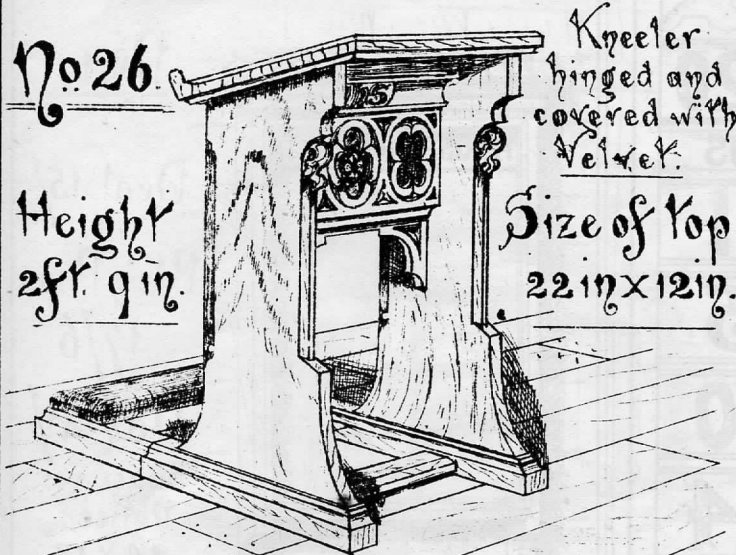 No 26.
Kneeler
hinged and
covered with
Velvet.
Height
2ft. 9in.
Size of top
22in x 12in.
IHS